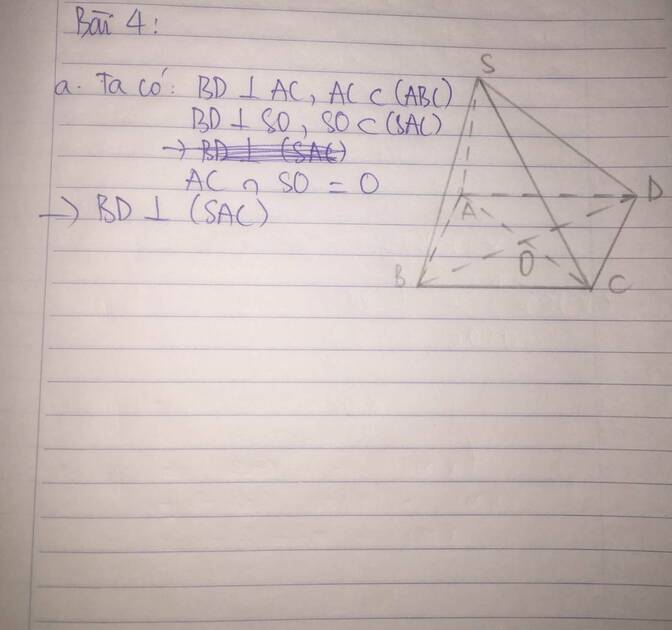 Bài 4:
a. Ta có: BD ⊥ AC, AC ⊂ (ABC)
BD ⊥ SO, SO ⊂ (SAC)
→ BD ⊥ (SAC)
AC ∩ SO = O
→ BD ⊥ (SAC)
S
A
D
B
O
C